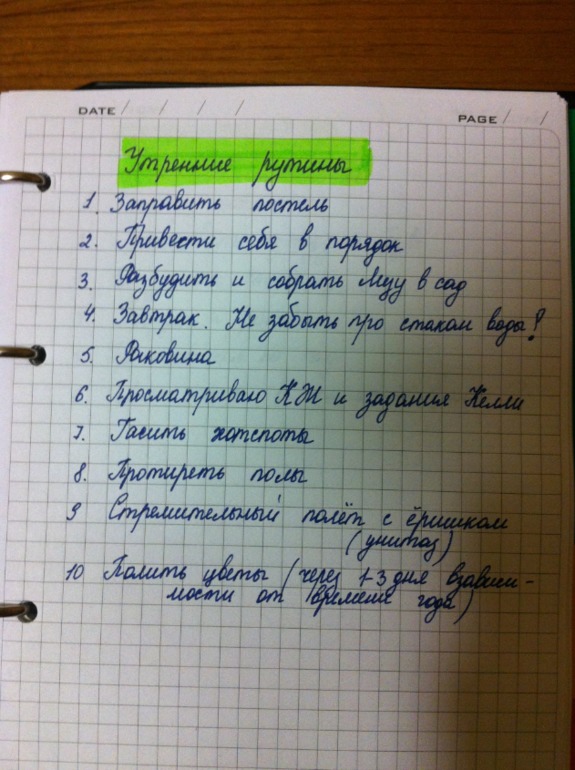 DATE / / / /
PAGE / /
Утренние рутины
1. Заправить постель
2. Привести себя в порядок
3. Разбудить и собрать Мууу в сад
4. Завтрак. Не забыть про стакан воды!
5. Раковина
6. Просматриваю КЖ и задания Келли
7. Гасить хотспоты
8. Протереть полы
9 Стремительный полёт с ёршиком
(унитаз)
10 Полить цветы (через 1-3 дня взависи-
мости от времени года)